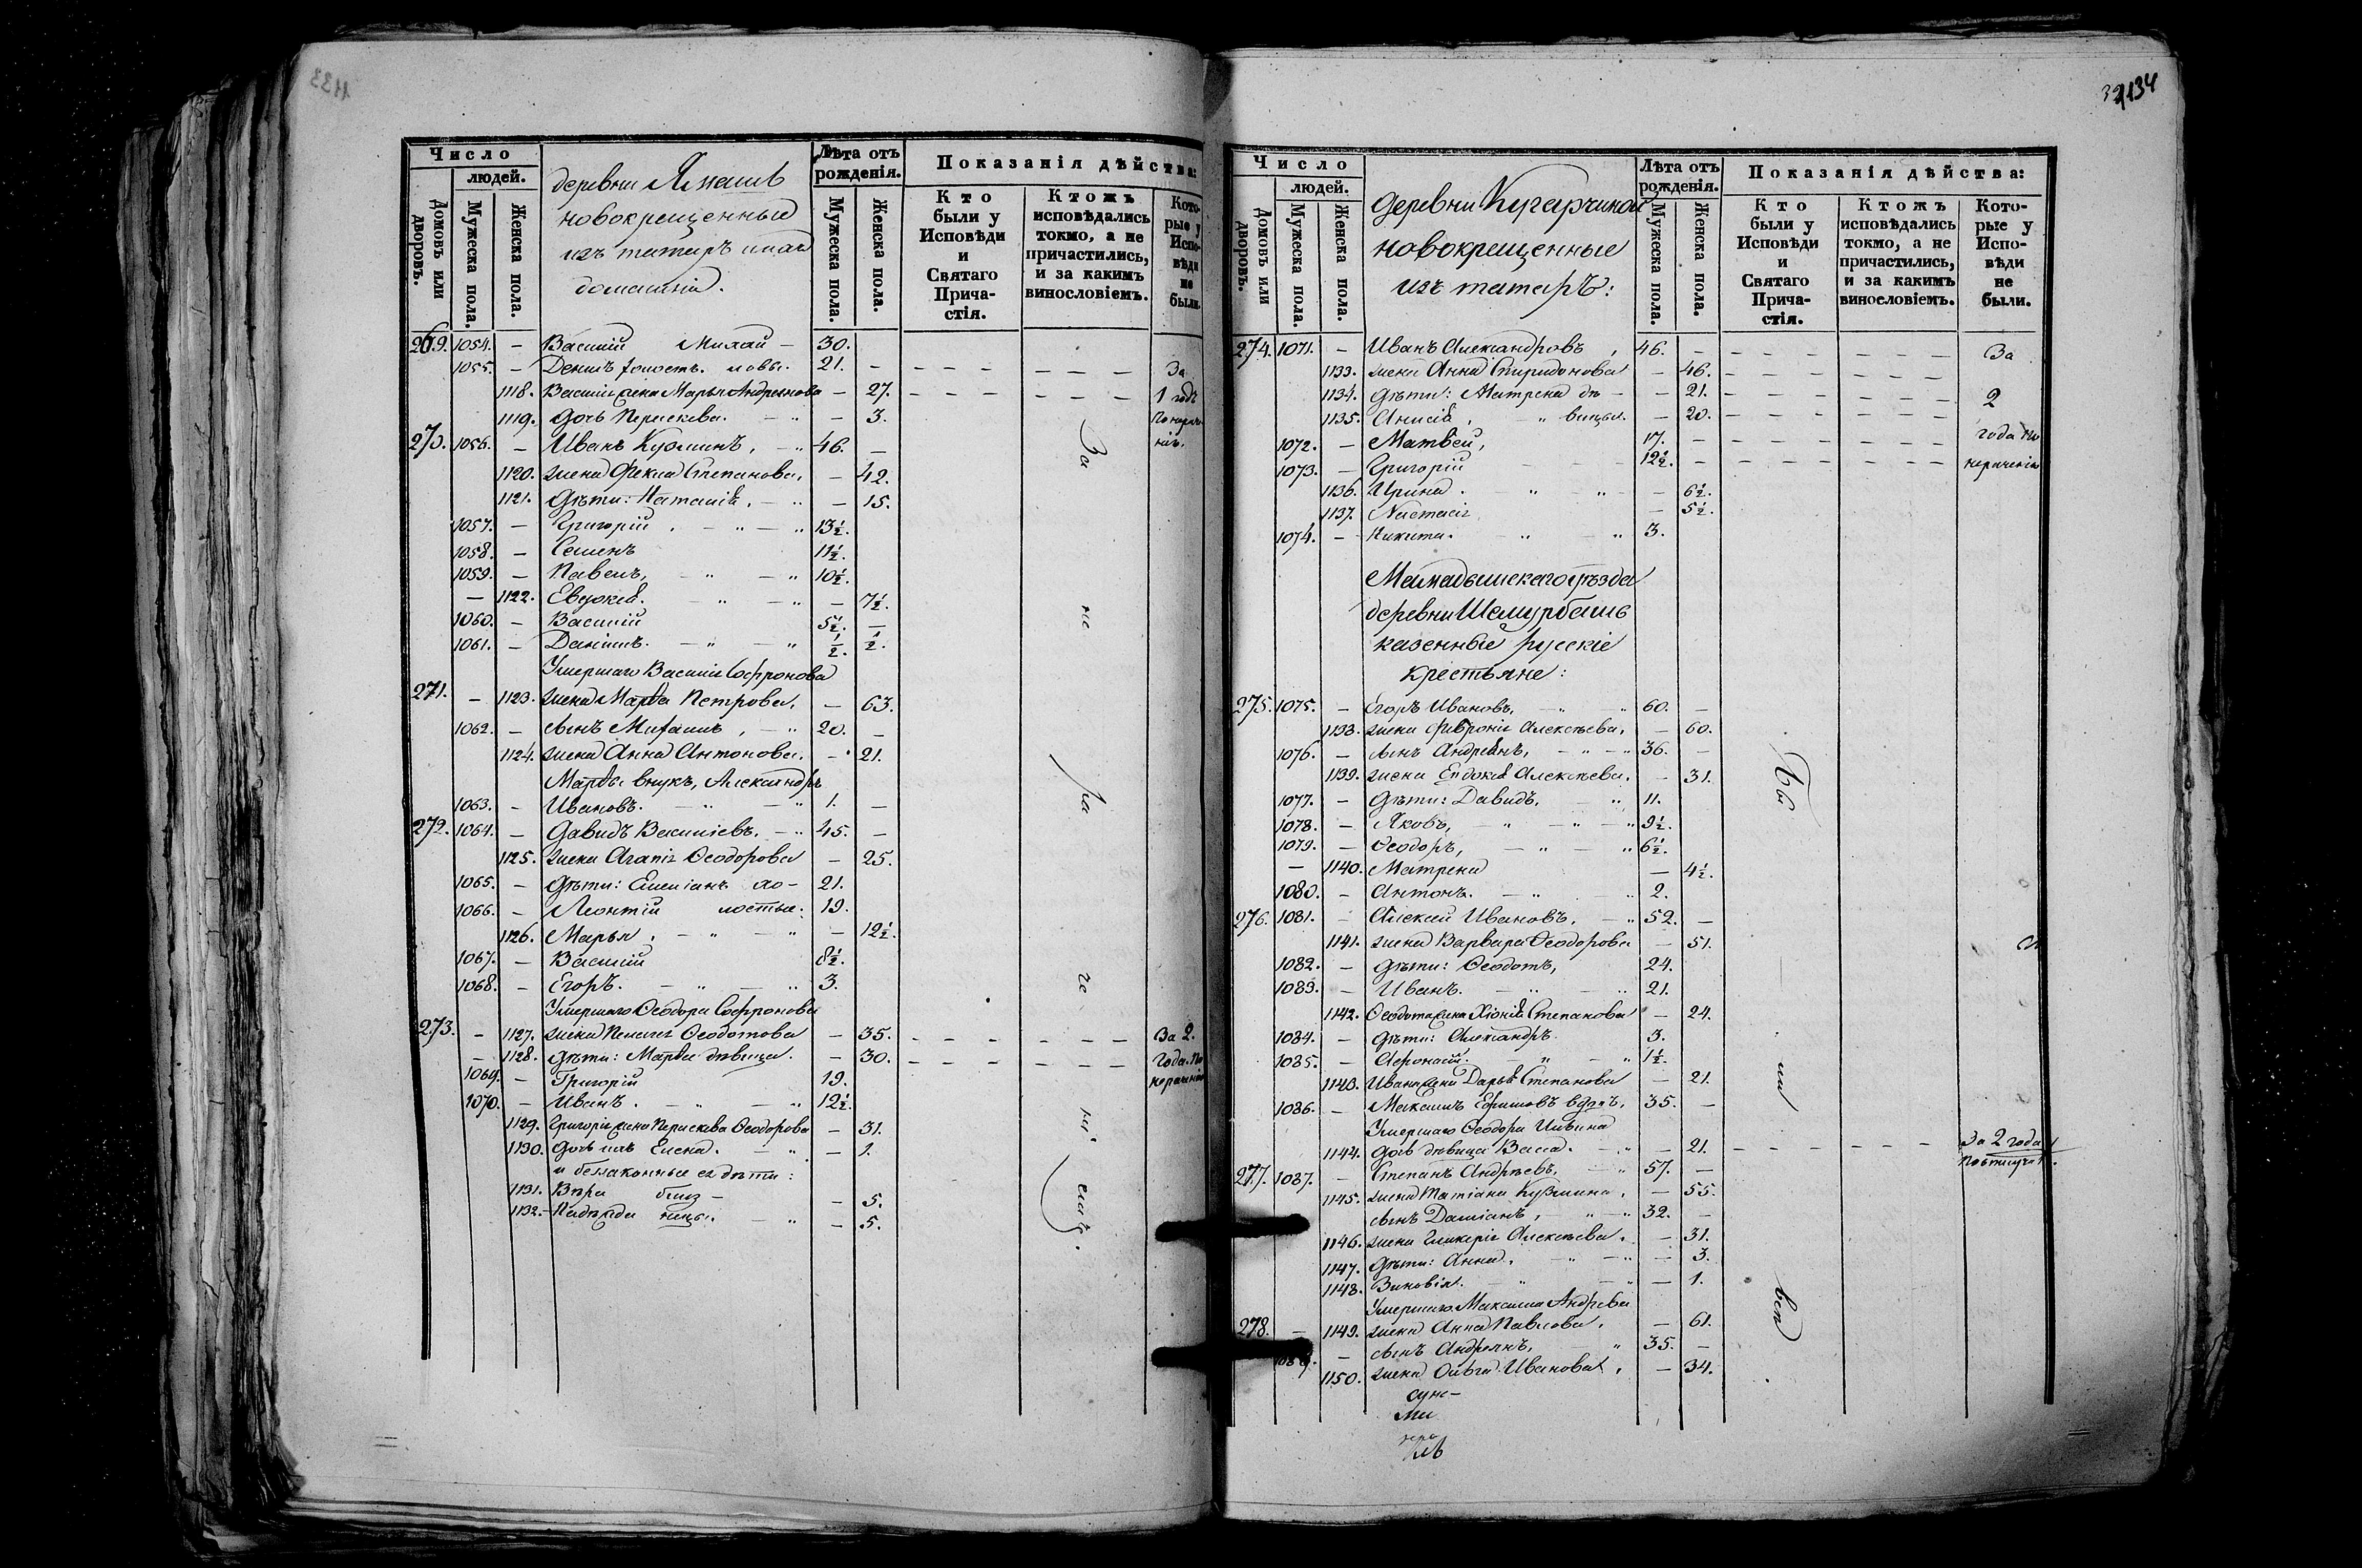 1133
Число
людей.
Домовъ или дворовъ.
Мужеска пола.
Женска пола.
деревни
новокрещенные
изъ татаръ
Лѣта отъ рожденія.
Мужеска пола.
Женска пола.
Показанія дѣйства:
Кто были у Исповѣди и Святаго Прича-стія.
Ктожъ исповѣдались токмо, а не причастились, и за какимъ винословіемъ.
Кото-рые у Испо-вѣди не были.
269. 1054. — Василій — 30.
1055. — 21. — За
1118. Василія жена Марья Андреянова — 27. 1 годъ
1119. дочь Параскева. — 3. По нерач-
270. 1056. — Иванъ Кузминъ, — 46. — ніи.
1120. жена Фекла Степанова, — 42.
1121. Дѣти: Наталія, — 15.
1057. — Григорій, — 13½.
1058. — Семенъ 11½.
1059. — Павелъ, — 10½.
— 1122. Евдокія. — 7½.
1060. — Василій 5½. —
1061. — Даніилъ. — ½. ½.
Умершаго Василія Софронова
271. — 1123. жена Марѳа Петрова, — 63.
1062. — сынъ Михаилъ, — 20. —
1124. жена Анна Антонова. — 21.
Марѳы внукъ, Александръ
1063. — Ивановъ. — 1. —
272. 1064. — Давидъ Василіевъ. — 45. —
1125. жена Агапія Ѳеодорова — 25.
1065. — дѣти: Емеліанъ хо- 21.
1066. — Леонтій лостые. 19.
1126. Марья, — 12½.
1067. — Василій 8½.
1068. — Егоръ. — 3.
Умершаго Ѳеодора Софронова
273. — 1127. жена Пелагея Ѳеодотова — 35. За 2.
— 1128. дѣти: Марѳа дѣвица. — 30. года. По
1069. — Григорій 19. нераченію
1070. — Иванъ. — 12½.
1129. Григорія жена Параскева Ѳеодорова — 31.
1130. дочь ихъ Елена. — 1.
и беззаконные ея дѣти:
1131. Вѣра близ- — 5.
1132. — Надежда нецы. — 5.
За не ра че ні емъ.
1134
Число
людей.
Домовъ или дворовъ.
Мужеска пола.
Женска пола.
деревни Кугарчиной
новокрещенные
изъ татаръ:
Лѣта отъ рожденія.
Мужеска пола.
Женска пола.
Показанія дѣйства:
Кто были у Исповѣди и Святаго Прича-стія.
Ктожъ исповѣдались токмо, а не причастились, и за какимъ винословіемъ.
Кото-рые у Испо-вѣди не были.
274. 1071. — Иванъ Александровъ, 46. — За
1133. жена Анна Спиридонова — 46.
1134. дѣти: Матрена дѣ- — 21. 2
1135. Анисія, вицы. — 20.
1072. — Матвей, 17. — года по
1073. — Григорій 12½. — нераченію
1136. Ирина. — 6½.
1137. Настасія — 5½.
1074. — Никита. 3.
Мамадышскаго уѣзда
деревни Шемурбашъ
казенные русскіе
крестьяне:
275. 1075. — Егоръ Ивановъ, — 60. —
1138. жена Февронія Алексѣева, — 60.
1076. — сынъ Андреянъ, — 36. —
1139. жена Евдокія Алексѣева. — 31.
1077. — Дѣти: Давидъ, — 11.
1078. — Яковъ, — 9½.
1079. — Ѳеодоръ, — 6½.
— 1140. Матрена — 4½.
1080. — Антонъ. — 2.
276. 1081. — Алексей Ивановъ, — 52. —
1141. жена Варвара Ѳеодорова — 51.
1082. — дѣти: Ѳеодотъ, 24.
1083. — Иванъ. — 21.
1142. Ѳеодота жена Хіонія Степанова — 24.
1084. — дѣти: Александръ 3.
1085. — Афонасій. — 1½.
1143. Ивана жена Дарья Степанова — 21.
1086. — Максимъ Ефимовъ вдовъ, 35. —
Умершаго Ѳеодора Ильина
1144. дочь дѣвица Васса. — 21. За 2 года
277. 1087. — Степанъ Андреевъ, — 57. —
1145. жена Татіана Кузмина, — 55.
сынъ Даміанъ, — 32. —
1146. жена Гликерія Алексѣева. — 31.
1147. Дѣти: Анна. — 3.
1148. Зиновія. — 1.
Умершаго Максима Андреева
278. — 1149. жена Анна Павлова. — 61.
— сынъ Андреянъ, 35. —
1150. жена Ольга Иванова, — 34.